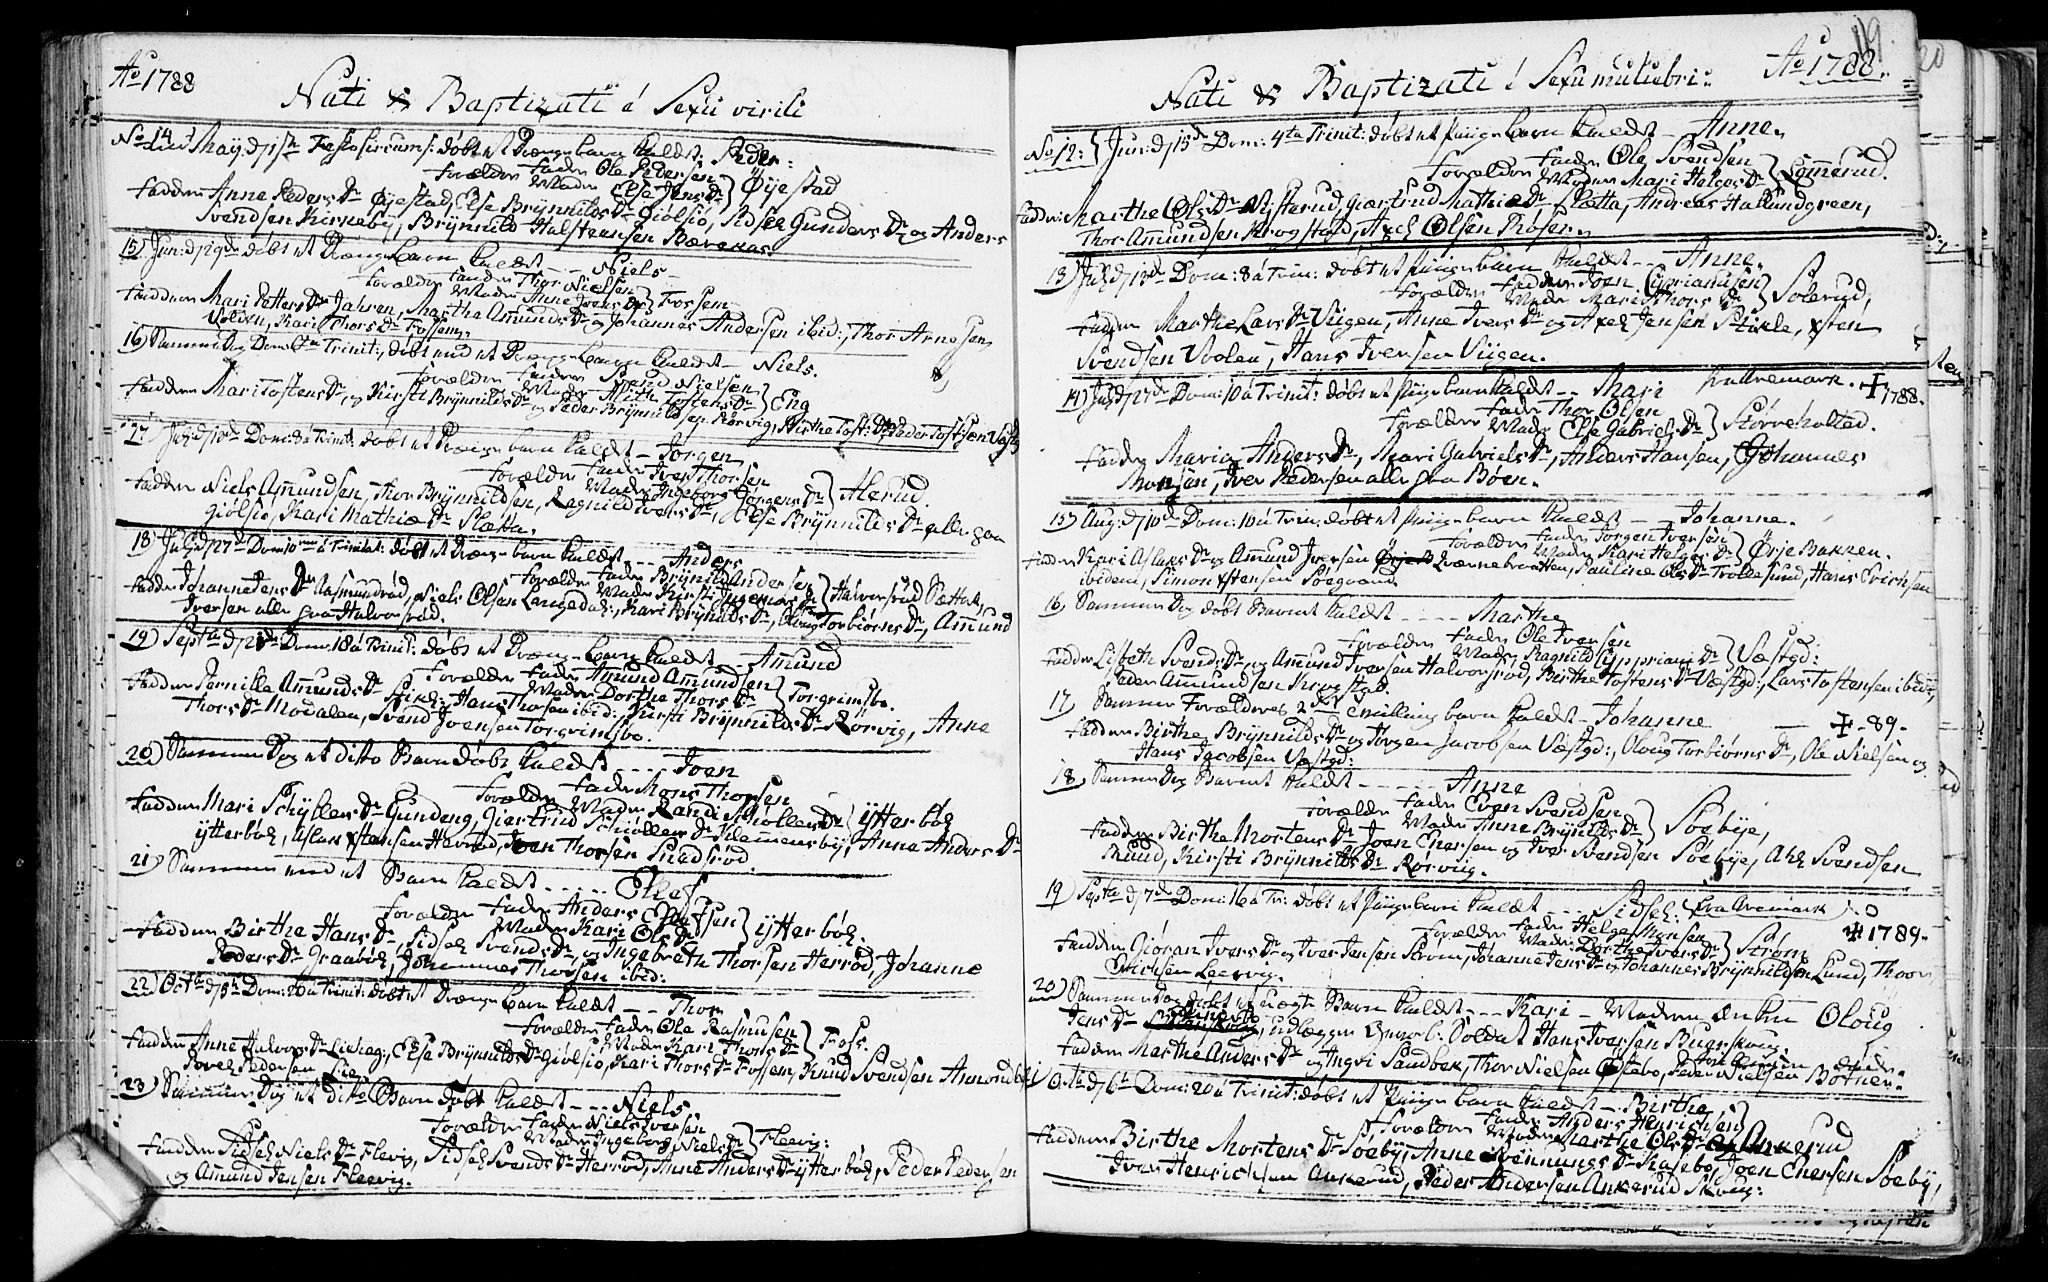 Ao 1788
Nati & Baptizati é Sexu virili
No 14 May d 1ste Festo circums: døbt et Drænge barn kaldt: Peder:
Forældre Fader Ole Pedersen
Moder Else Jens Dr } Øÿestad
Faddere Anne Peders Dr Øÿestad, Else Brÿnnilds Dr Giølsiø, Sidsel Gunders Dr og Anders
Svendsen Kirkebÿ, Brÿnnild Halstensen
15) Jun: d 29de døbt et Drænge barn kaldt - - Niels -
Forældre Fader Thor Nielsen
Moder Anne Joens Dr } Fossem -
Faddere Mari Petters Dr Jahren, Marthe Amunds Dr og Johannes Andersen ibid:, Thor Arnesen
Kari Thors Dr Fossem.
16) Samme Dag Dom: Trinit:, døbt end et Drænge barn kaldt - Niels.
Forældre Fader Svend Nielsen
Moder Tostens Dr } Eng
Faddere Mari Tostens Dr, og Kirsti Brÿnnilds Dr
og Peder Brÿnnildsen Rørvig, Birthe Tost: Dr Peder Tostsen
17) Julÿ d 13de Dom: 8 á Trinit: døbt et Drænge barn kaldt - Jørgen
Forældre Fader Iver Thorsen
Moder Ingeborg Jørgens Dr } Alerud
Faddere Niels Amundsen, Thor Brÿnnildsen, Ragnild Ivers Dr, Else Brÿnnilds Dr alle paa
Giølsiø, Kari Mathiæ Dr Slætta.
18) Julÿ d 27de Dom: 10 á Trinitat: døbt et Drænge barn kaldt - - Anders
Forældre Fader Brÿnild Andersen
Moder Kirsti Ingemors Dr } Halvorsrud
Faddere Johanne Jens Dr Aasmundrød, Niels Olsen Langedal, Kari Brÿnilds Dr, Oloug Torbiørns Dr, Amund
Iversen alle fra Halvorsrød.
19) Septbr d 21de Dom: 18 á Trinit: døbt et Drænge barn kaldt - Amund
Forældre Fader Amund Amundsen
Moder Dorthe Thors Dr } Torgrimsbo.
Faddere Pernille Amunds Dr Stikl: Hans Thorsen ibid: Kirsti Brÿnnilds Dr Rörvig, Anne
Thors Dr Modalen, Svend Iversen Torgrimsbo.
20) Samme Dag et ditto Barn døbt kaldt - - - Joen
Forældre Fader Mons Thorsen
Moder Randi Schøllers Dr } ÿtterbøg
Faddere Mari Schÿllers Dr Gundeng, Giertrud Schøllers Dr Klemmensbÿ, Anne Anders Dr
ÿtterböl, Aslax Xstensen Hevrød, Joen Thorsen
21) Samme end et Barn kaldt - - - - - Oluf
Forældre Fader Anders Olufsen
Moder Kari Ols Dr } ÿtterböl.
Faddere Birthe Hans Dr, Sidsel Svends Dr, og Ingebreth Thorsen Herröd, Johanne
Peders Dr Graavöl, Johannes Thorsen ibid:
22) Octbr d 5te Dom: 20 á Trinit: døbt et Drænge barn kaldt - - - Thor
Forældre Fader Ole Rasmusen
Moder Kari Thors Dr } Foss.
Faddere Anne Halvors Dr Liehag:, Else Brÿnnilds Dr Giølsiø, Kari Thors Dr Fossem, Knud Svendsen
Povel Pedersen Lie
23) Samme Dag et dito Barn døbt kaldt - - - Niels
Forældre Fader Niels Iversen
Moder Ingeborg Niels Dr } Fleevig:
Faddere Sidsel Niels Dr Flevig, Sidsel Svends Dr Herröd, Anne Anders Dr ÿtterböl, Peder Pedersen
og Amund Jensen Fleevig.
119
Ao 1788
Nati & Baptizati é Sexu muliebri
No 12: } Jun: d 15de Dom: 4ta Trinit: døbt et Pige barn kaldt - Anne,
Forældre Fader Ole Svendsen
Moder Mari Helges Dr } Lømerud.
Faddere: Marthe Ols Dr Visterud, Giertrud Mathiæ Dr Slætta, Andreas Hallundgreen,
Thor Amundsen Krogstad, Axel Olsen Fosen.
13) Julÿ d 13de Dom: 8 á Trin: døbt et Pige barn kaldt - - Anne.
Forældre Fader Joen Cyprianusen
Moder Mari Thors Dr } Solerud,
Faddere Marthe Lars Dr Viigen, Anne Ivers Dr og Axel Jensen Stikle, Xsten
Svendsen Voolen, Hans Iversen Viigen.
14) Julÿ d 27de Dom: 10 á Trinit: døbt et Pige barn kaldt - - Mari fra Aremark. + 1788.
Forældre Fader Thor Olsen
Moder Else Gabriels Dr } Störreholted.
Faddere Maria Anders Dr, Mari Gabriels Dr, Anders Hansen, Johannes
Monsen, Iver Pedersen alle fra Böen.
15) Aug: d 10de Dom: á Trin: døbt et Pige barn kaldt - Johanne.
Forældre Fader Jørgen Iversen
Moder Kari Helges Dr } Ørje Bakken.
Faddere Kari Aslaxs Dr og Amund Iversen Ørje Qværnebraatten, Pauline Ols Dr Tröllesund, Hans Erichsen
ibidem, Simon Xstensen
16) Samme Dag døbt Barnet kaldt - - - - Marthe
Forældre Fader Ole Ivarsen
Moder Ragnild Cypriani Dr } Væstgd:
Faddere Lisbeth Svends Dr og Amund Iversen Halvorsröd, Birthe Tostens Dr Væstgd:, Lars Tostensen ibid:,
Peder Amundsen Krogstad.
17) Samme Forældres 2det Tvilling barn kaldt - Johanne - + 89 -
Faddere Birthe Brÿnnilds Dr og Jørgen Jacobsen Væstgd:, Oloug Torbiørns Dr, Ole Nielsen og
Hans Jacobsen Væstgd:
18) Samme Dag Barnet kaldt - - - - - Anne
Forældre Fader Even Svendsen
Moder Anne Brÿnilds Dr } Söebÿe,
Faddere Birthe Mortens Dr Joen Enersen og Iver Svendsen Söebÿe, Axel Svendsen
Kirsti Brÿnnilds Dr Rørviig.
19) Septbr d 7de Dom: 16 á Tr: døbt et Pige barn kaldt - - - Sidsel: fra Aremark
Forældre Fader Helge Monsen + 1789 -
Moder Dorthe Ivers Dr } Ström
Faddere Giöran Ivers Dr og Iver Jensen Ström, Johanne Jens Dr og Johannes Brÿnnildsen Lund, Thor
Erichsen Leervig.
20) Samme Dag døbt et uægte Barn kaldt - - - Kari - Moderen Enken Oloug
Jens Dr udlægger Gevorb: Soldat Hans Iversen Buerskoug.
Faddere Marthe Anders Dr og Ingri Sandbek, Thor Nielsen Østebø, Peder Nielsen Böttner
21) Octbr d 5te Dom: 20 á Trinit: døbt et Pige barn kaldt - - Birthe
Forældre Fader Anders Henrichsen
Moder Marthe Ols Dr } Ankerud
Faddere Birthe Mortens Dr Söebÿ, Anne Rönnings Dr Kasebo, Joen Enersen Söebÿ,
Iver Henrichsen Ankerud, Peder Andersen Ankerud Skoug: